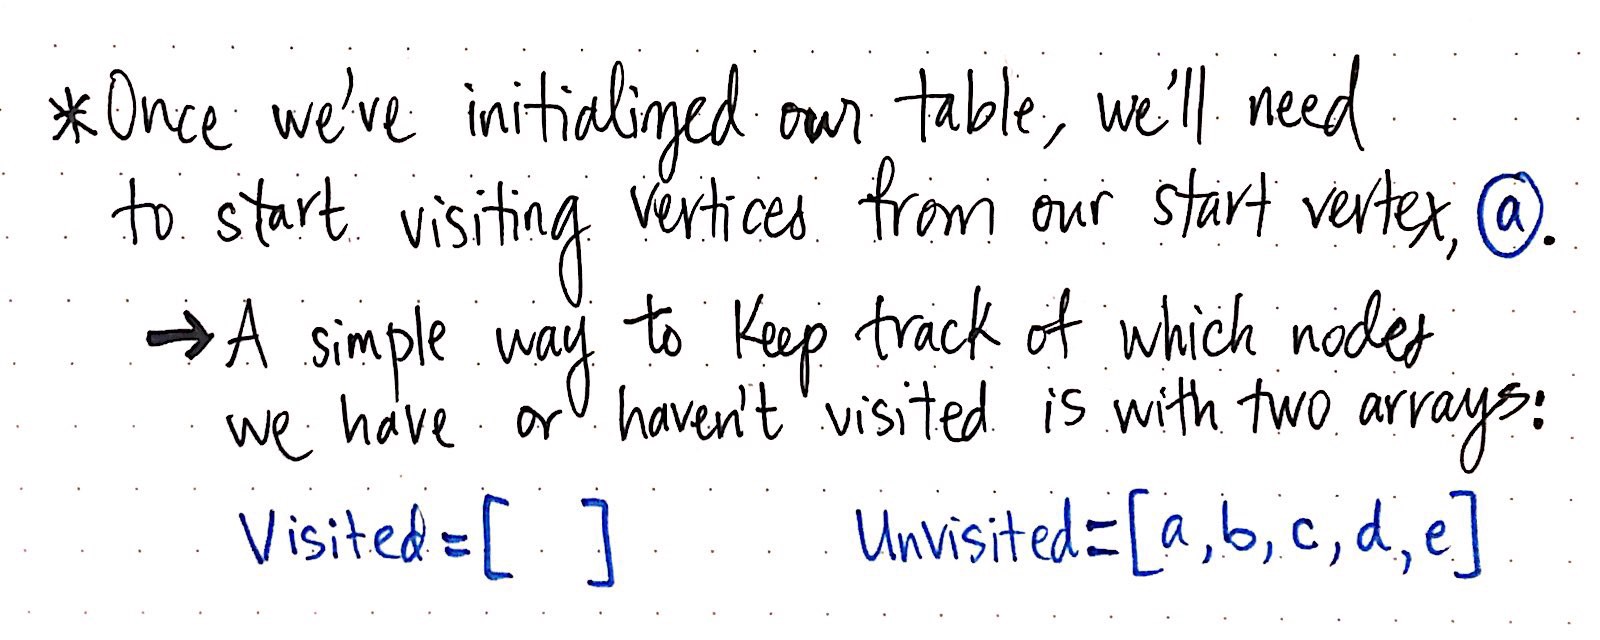 * Once we've initialized our table, we'll need
to start visiting vertices from our start vertex, a.
→ A simple way to keep track of which nodes
we have or haven't visited is with two arrays:
Visited = [ ] Unvisited = [a, b, c, d, e]